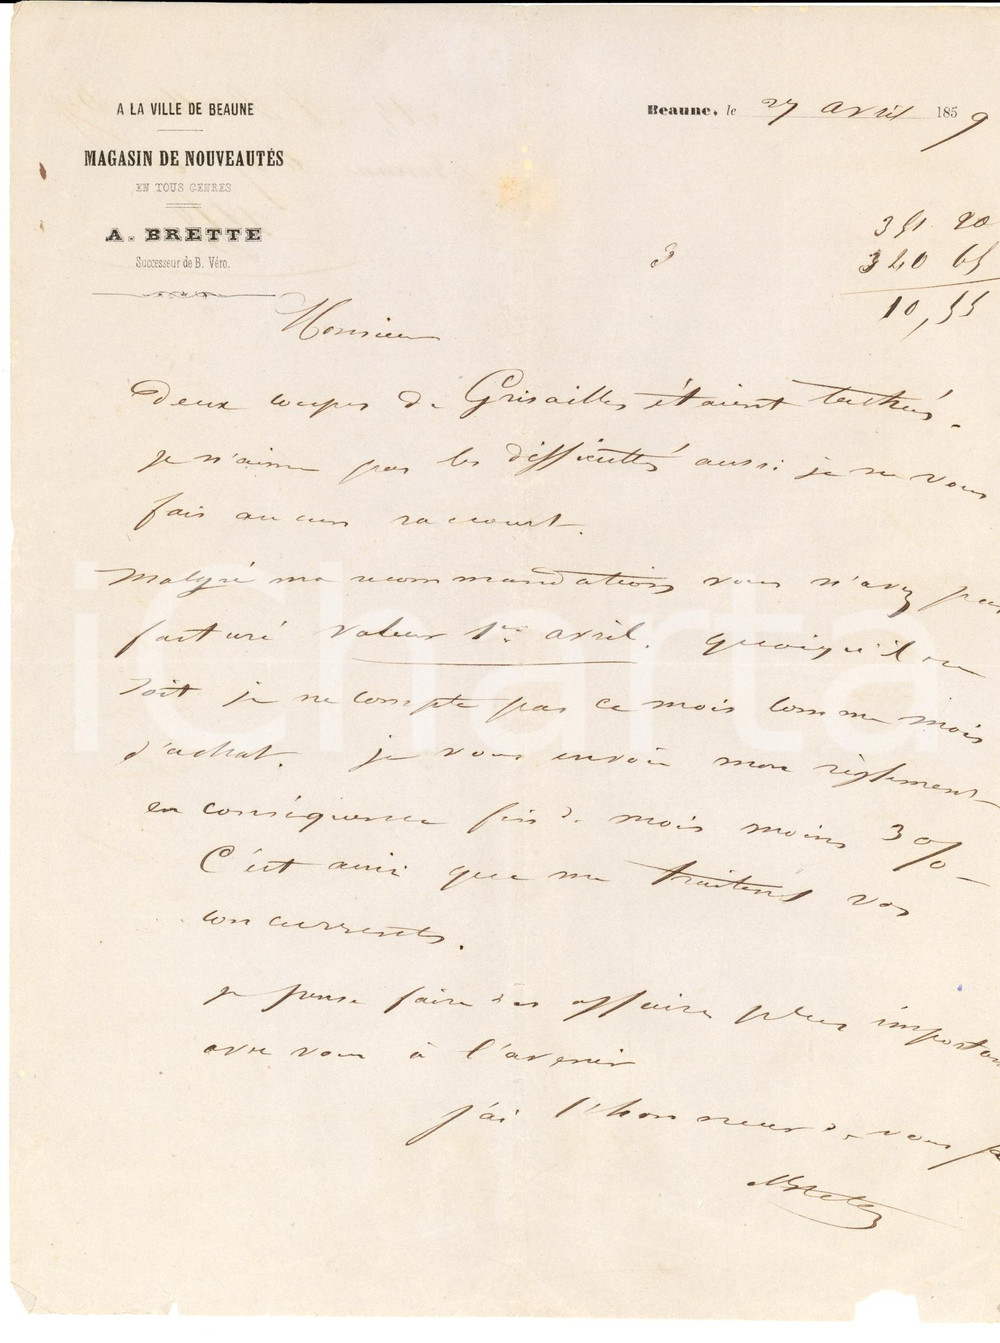 A LA VILLE DE BEAUNE
MAGASIN DE NOUVEAUTÉS
EN TOUS GENRES
A. BRETTE
Successeur de B. Véro.
Beaune, le 27 avril 1859
351 20
3
340 65
10,55
Monsieur
Deux coupes de Grisailles étaient tachés.
je n'aime pas les difficultés aussi je ne vous
fais aucun raccourt.
Malgré ma recommandations vous n'avez pas
facturé valeur 1er avril. quoiqu'il en
soit je ne compte pas ce mois comme mois
d'achat. je vous envoie mon règlement
en conséquence fin de mois moins 3%
C'est ainsi que me traitent vos
concurrents.
je pense faire des affaires plus important
avec vous à l'avenir
j'ai l'honneur de vous
iCharta